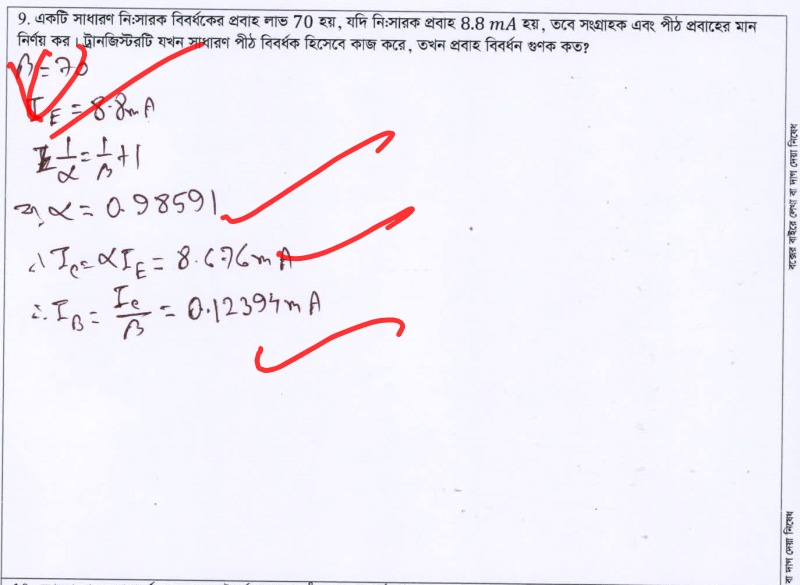 9. একটি সাধারণ নি:সারক বিবর্ধকের প্রবাহ লাভ 70 হয়, যদি নি:সারক প্রবাহ 8.8 mA হয়, তবে সংগ্রাহক এবং পীঠ প্রবাহের মান
নির্ণয় কর। ট্রানজিস্টরটি যখন সাধারণ পীঠ বিবর্ধক হিসেবে কাজ করে, তখন প্রবাহ বিবর্ধন গুণক কত?
β = 70
I_E = 8.8mA
1/α = 1/β + 1
বা, α = 0.98591
∴ I_C = αI_E = 8.676mA
∴ I_B = I_C/β = 0.12394mA
বক্সের বাইরে লেখা বা দাগ দেয়া নিষেধ
বা দাগ দেয়া নিষেধ